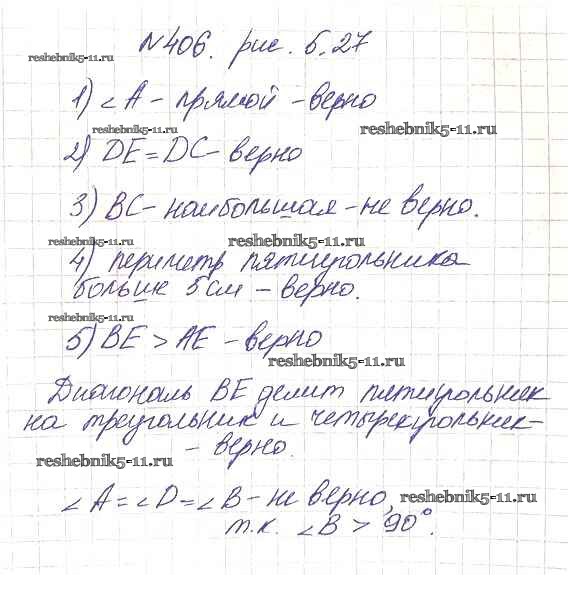 №406. рис. 5.27
reshebnik5-11.ru
1) ∠A - прямой - верно
reshebnik5-11.ru reshebnik5-11.ru
2) DE = DC - верно
3) BC - наибольшая - не верно.
reshebnik5-11.ru reshebnik5-11.ru
4) периметр пятиугольника
больше 5 см - верно.
reshebnik5-11.ru
5) BE > AE - верно
reshebnik5-11.ru
Диагональ BE делит пятиугольник
на треугольник и четырехугольник -
- верно.
reshebnik5-11.ru
∠A = ∠D = ∠B - не верно,
reshebnik5-11.ru
т.к. ∠B > 90°.